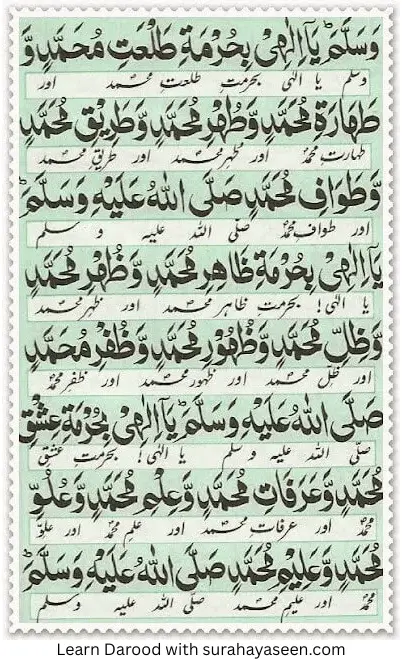 وَسَلَّمَ ؕ يَآ اِلٰهِىْ بِحُرْمَةِ طَلْعَتِ مُحَمَّدٍ وَّ
وسلم یا الٰہی بحرمتِ طلعتِ محمد اور
طَهَارَةِ مُحَمَّدٍ وَّطُهْرِ مُحَمَّدٍ وَّطَرِيْقِ مُحَمَّدٍ
طہارتِ محمد اور طہر محمد اور طریقِ محمد
وَّطَوَافِ مُحَمَّدٍ صَلَّى اللهُ عَلَيْهِ وَسَلَّمَ ؕ
اور طوافِ محمد صلی اللہ علیہ و سلم
يَآ اِلٰهِىْ بِحُرْمَةِ ظَاهِرِ مُحَمَّدٍ وَّظُهْرِ مُحَمَّدٍ
یا الٰہی! بحرمتِ ظاہر محمد اور ظہر محمد
وَّظِلِّ مُحَمَّدٍ وَّظُهُوْرِ مُحَمَّدٍ وَّظُفْرِ مُحَمَّدٍ
اور ظل محمد اور ظہور محمد اور ظفر محمد
صَلَّى اللهُ عَلَيْهِ وَسَلَّمَ ؕ يَآ اِلٰهِىْ بِحُرْمَةِ عِشْقِ
صلی اللہ علیہ وسلم یا الٰہی! بحرمتِ عشق
مُحَمَّدٍ وَّعَرَفَاتِ مُحَمَّدٍ وَّعِلْمِ مُحَمَّدٍ وَّعُلُوِّ
محمد اور عرفاتِ محمد اور علمِ محمد اور علوِّ
مُحَمَّدٍ وَّعَلِيْمِ مُحَمَّدٍ صَلَّى اللهُ عَلَيْهِ وَسَلَّمَ ؕ
محمد اور علیم محمد صلی اللہ علیہ وسلم
Learn Darood with surahayaseen.com